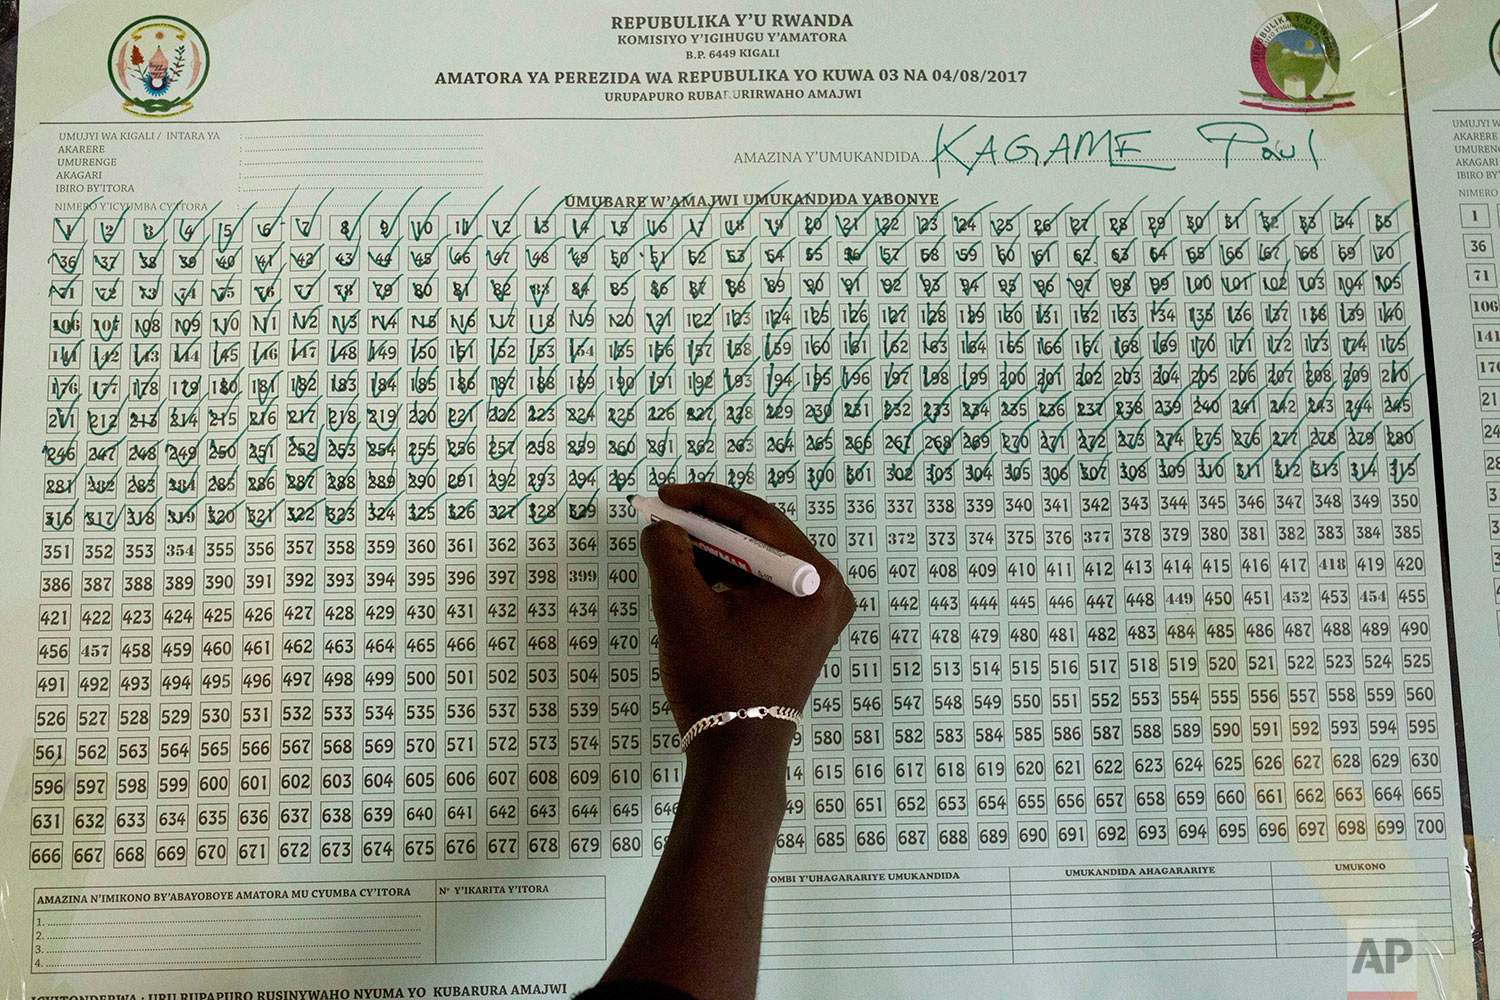 REPUBULIKA Y'U RWANDA
KOMISIYO Y'IGIHUGU Y'AMATORA
B.P. 6449 KIGALI
AMATORA YA PEREZIDA WA REPUBULIKA YO KUWA 03 NA 04/08/2017
URUPAPURO RUBARURIRWAHO AMAJWI
UMUJYI WA KIGALI / INTARA YA :
AKARERE :
UMURENGE :
AKAGARI :
IBIRO BY'ITORA :
NIMERO Y'ICYUMBA CY'ITORA :
AMAZINA Y'UMUKANDIDA KAGAME Paul
UMUBARE W'AMAJWI UMUKANDIDA YABONYE
1 2 3 4 5 6 7 8 9 10 11 12 13 14 15 16 17 18 19 20 21 22 23 24 25 26 27 28 29 30 31 32 33 34 35
36 37 38 39 40 41 42 43 44 45 46 47 48 49 50 51 52 53 54 55 56 57 58 59 60 61 62 63 64 65 66 67 68 69 70
71 72 73 74 75 76 77 78 79 80 81 82 83 84 85 86 87 88 89 90 91 92 93 94 95 96 97 98 99 100 101 102 103 104 105
106 107 108 109 110 111 112 113 114 115 116 117 118 119 120 121 122 123 124 125 126 127 128 129 130 131 132 133 134 135 136 137 138 139 140
141 142 143 144 145 146 147 148 149 150 151 152 153 154 155 156 157 158 159 160 161 162 163 164 165 166 167 168 169 170 171 172 173 174 175
176 177 178 179 180 181 182 183 184 185 186 187 188 189 190 191 192 193 194 195 196 197 198 199 200 201 202 203 204 205 206 207 208 209 210
211 212 213 214 215 216 217 218 219 220 221 222 223 224 225 226 227 228 229 230 231 232 233 234 235 236 237 238 239 240 241 242 243 244 245
246 247 248 249 250 251 252 253 254 255 256 257 258 259 260 261 262 263 264 265 266 267 268 269 270 271 272 273 274 275 276 277 278 279 280
281 282 283 284 285 286 287 288 289 290 291 292 293 294 295 296 297 298 299 300 301 302 303 304 305 306 307 308 309 310 311 312 313 314 315
316 317 318 319 320 321 322 323 324 325 326 327 328 329 330 335 336 337 338 339 340 341 342 343 344 345 346 347 348 349 350
351 352 353 354 355 356 357 358 359 360 361 362 363 364 365 370 371 372 373 374 375 376 377 378 379 380 381 382 383 384 385
386 387 388 389 390 391 392 393 394 395 396 397 398 399 400 406 407 408 409 410 411 412 413 414 415 416 417 418 419 420
421 422 423 424 425 426 427 428 429 430 431 432 433 434 435 442 443 444 445 446 447 448 449 450 451 452 453 454 455
456 457 458 459 460 461 462 463 464 465 466 467 468 469 470 476 477 478 479 480 481 482 483 484 485 486 487 488 489 490
491 492 493 494 495 496 497 498 499 500 501 502 503 504 505 511 512 513 514 515 516 517 518 519 520 521 522 523 524 525
526 527 528 529 530 531 532 533 534 535 536 537 538 539 540 545 546 547 548 549 550 551 552 553 554 555 556 557 558 559 560
561 562 563 564 565 566 567 568 569 570 571 572 573 574 575 576 580 581 582 583 584 585 586 587 588 589 590 591 592 593 594 595
596 597 598 599 600 601 602 603 604 605 606 607 608 609 610 611 615 616 617 618 619 620 621 622 623 624 625 626 627 628 629 630
631 632 633 634 635 636 637 638 639 640 641 642 643 644 645 646 650 651 652 653 654 655 656 657 658 659 660 661 662 663 664 665
666 667 668 669 670 671 672 673 674 675 676 677 678 679 680 684 685 686 687 688 689 690 691 692 693 694 695 696 697 698 699 700
AMAZINA N'IMIKONO BY'ABAYOBOYE AMATORA MU CYUMBA CY'ITORA
N° Y'IKARITA Y'ITORA
1.
2.
3.
4.
Y'UHAGARARIYE UMUKANDIDA
UMUKANDIDA AHAGARARIYE
UMUKONO
ICYITONDERWA : URU RUPAPURO RUSINYWAHO NYUMA YO KUBARURA AMAJWI
UMUJYI
AKARERE
AKAGARI
NIMERO
1
36
71
106
AP